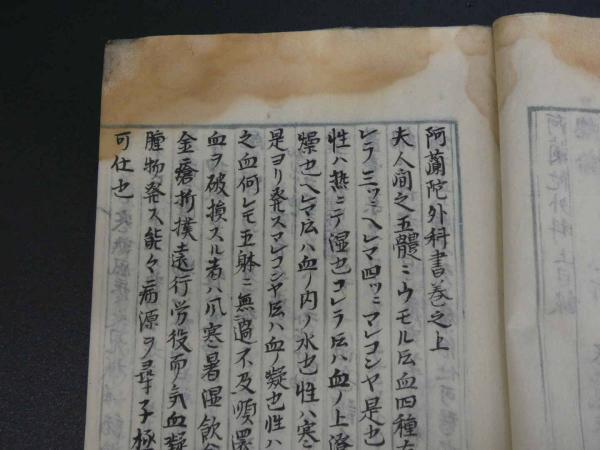 阿蘭陀外科書巻之上
夫人間之五體ニウモル云血四種有
レラ三ツニヘレマ四ツニマレコンヤ是也
性ハ熱ニテ湿也コレラ云ハ血ノ上澄
燥也ヘレマ云ハ血ノ内ノ水也性ハ寒ニ
是ヨリ発スマレコンヤ云ハ血ノ凝也性ハ
之血何レモ五躰ニ無過不及順還
血ヲ破損スル者ハ爪寒暑湿飲食
金瘡折撲遠行労役而気血凝
腫物発ス能々病源ヲ尋子極
可仕也